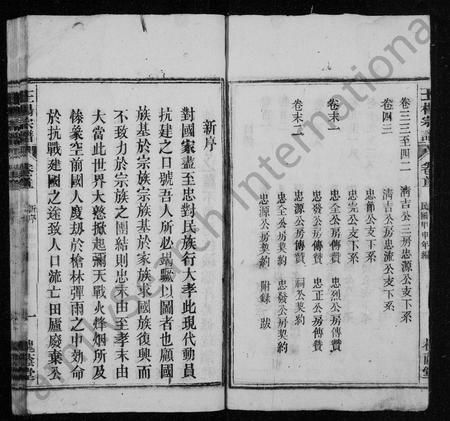 王楊宗譜 卷首 民國甲申年編
卷三三至四二 清吉公三房忠源公支下系
卷四三 清吉公忠流公支下系
忠節公支下系
忠完公支下系
卷末一 忠發公房傳贊 忠烈公房傳贊
忠正公房傳贊
忠源公房傳贊 祠公契約
卷末二 忠全公房契約 忠發公房契約
忠源公房契約 附錄 跋
新序
對國家盡至忠對民族行大孝此現代動員
抗建之口號吾人所必端驅以圖者也顧國
族基於宗族宗族基於家族求國族復興而
不致力於宗族之團結則忠末由至孝末由
大當此世界大慾掀起彌天戰火烽烟所及
條彖空前國人度刼於槍林彈雨之中効命
於抗戰建國之途致人口流亡田廬廢棄公
王楊宗譜 卷首 新序 一
FamilySearch International